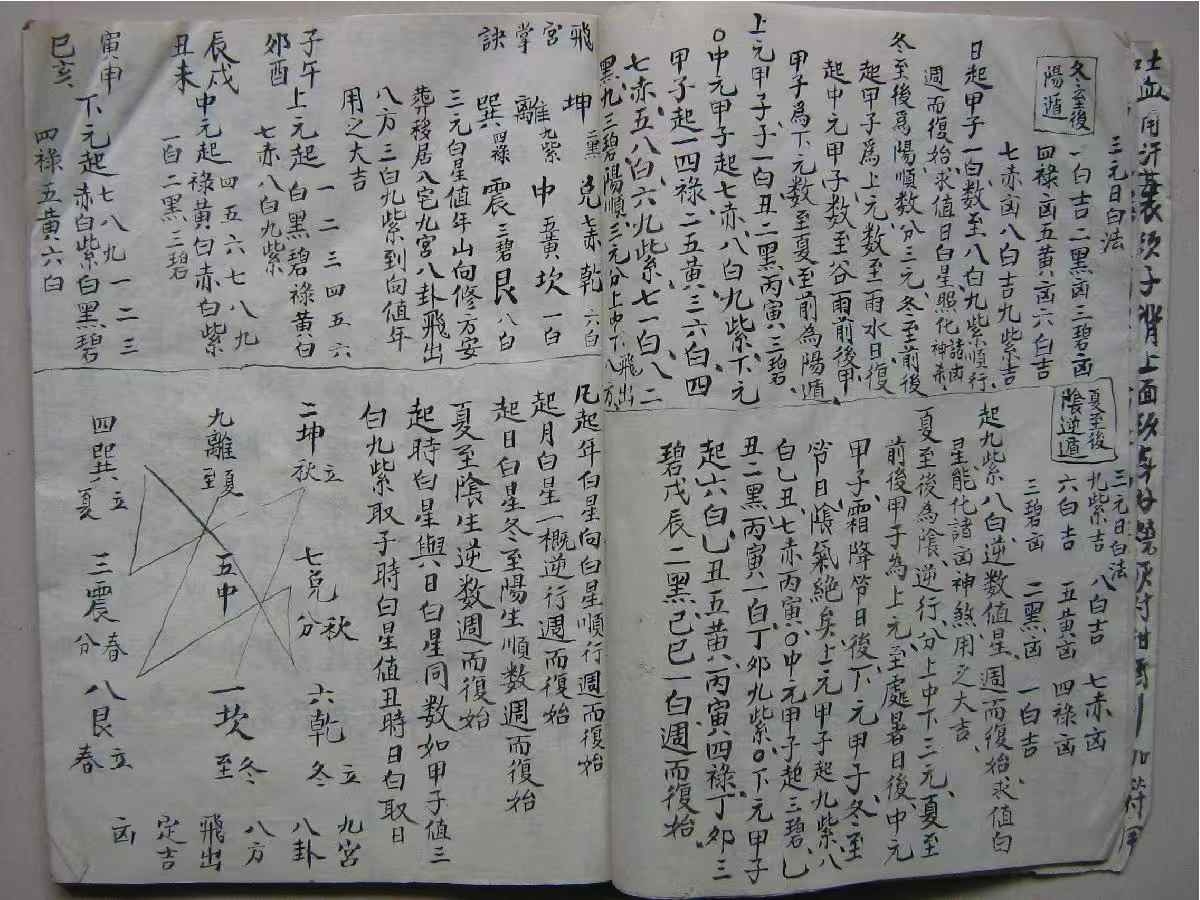 三元日白法
冬至後
陽遁
一白吉二黑凶三碧凶
四祿凶五黃凶六白吉
七赤凶八白吉九紫吉
日起甲子一白数至八白九紫順行
週而復始求值日白星照化諸凶神煞
冬至後爲陽順数分三元冬至前後
起甲子爲上元数至雨水日復
起中元甲子数至谷雨前後甲
甲子爲下元数至夏至前為陽遁
上元甲子子一白丑二黑丙寅三碧
○中元甲子起七赤八白九紫下元
甲子起一四祿二五黃三六白四
七赤五八白六九紫七一白八二
黑九三碧陽順三元分上中下八方飛出
夏至後
陰逆遁
三元日白法
九紫吉 八白吉 七赤凶
六白吉 五黃凶 四祿凶
三碧凶 二黑凶 一白吉
起九紫八白逆数值星週而復始求值白
星能化諸凶神煞用之大吉
夏至後為陰逆行分上中下三元夏至
前後甲子為上元至處暑日後中元
甲子霜降節日後下元甲子冬至
節日陰氣絕矣上元甲子起九紫八
白乙丑七赤丙寅○中元甲子起三碧乙
丑二黑丙寅一白丁卯九紫○下元甲子
起六白乙丑五黃丙寅四祿丁卯三
碧戊辰二黑己巳一白週而復始
飛宮掌訣
坤二黑 兌七赤 乾六白
離九紫 中五黃 坎一白
巽四祿 震三碧 艮八白
三元白星值年山向修方安
葬移居八宮九宮八卦飛出
八方三白九紫到向值年
用之大吉
子午
卯酉
上元起一二三四五六
白黑碧祿黃白
七赤八白九紫
辰戌
丑未
中元起四五六七八九
祿黃白赤白紫
一白二黑三碧
寅申
巳亥
下元起七八九一二三
赤白紫白黑碧
四祿五黃六白
凡起年白星向白星順行週而復始
起月白星一概逆行週而復始
起日白星冬至陽生順数週而復始
夏至陰生逆数週而復始
起時白星與日白星同数如甲子值三
白九紫取子時白星值丑時日白取日
二坤立秋 七兌秋分 六乾立冬
九離夏至 五中 一坎冬至
四巽立夏 三震春分 八艮立春
九宮
八卦
八方
飛出
定吉
凶